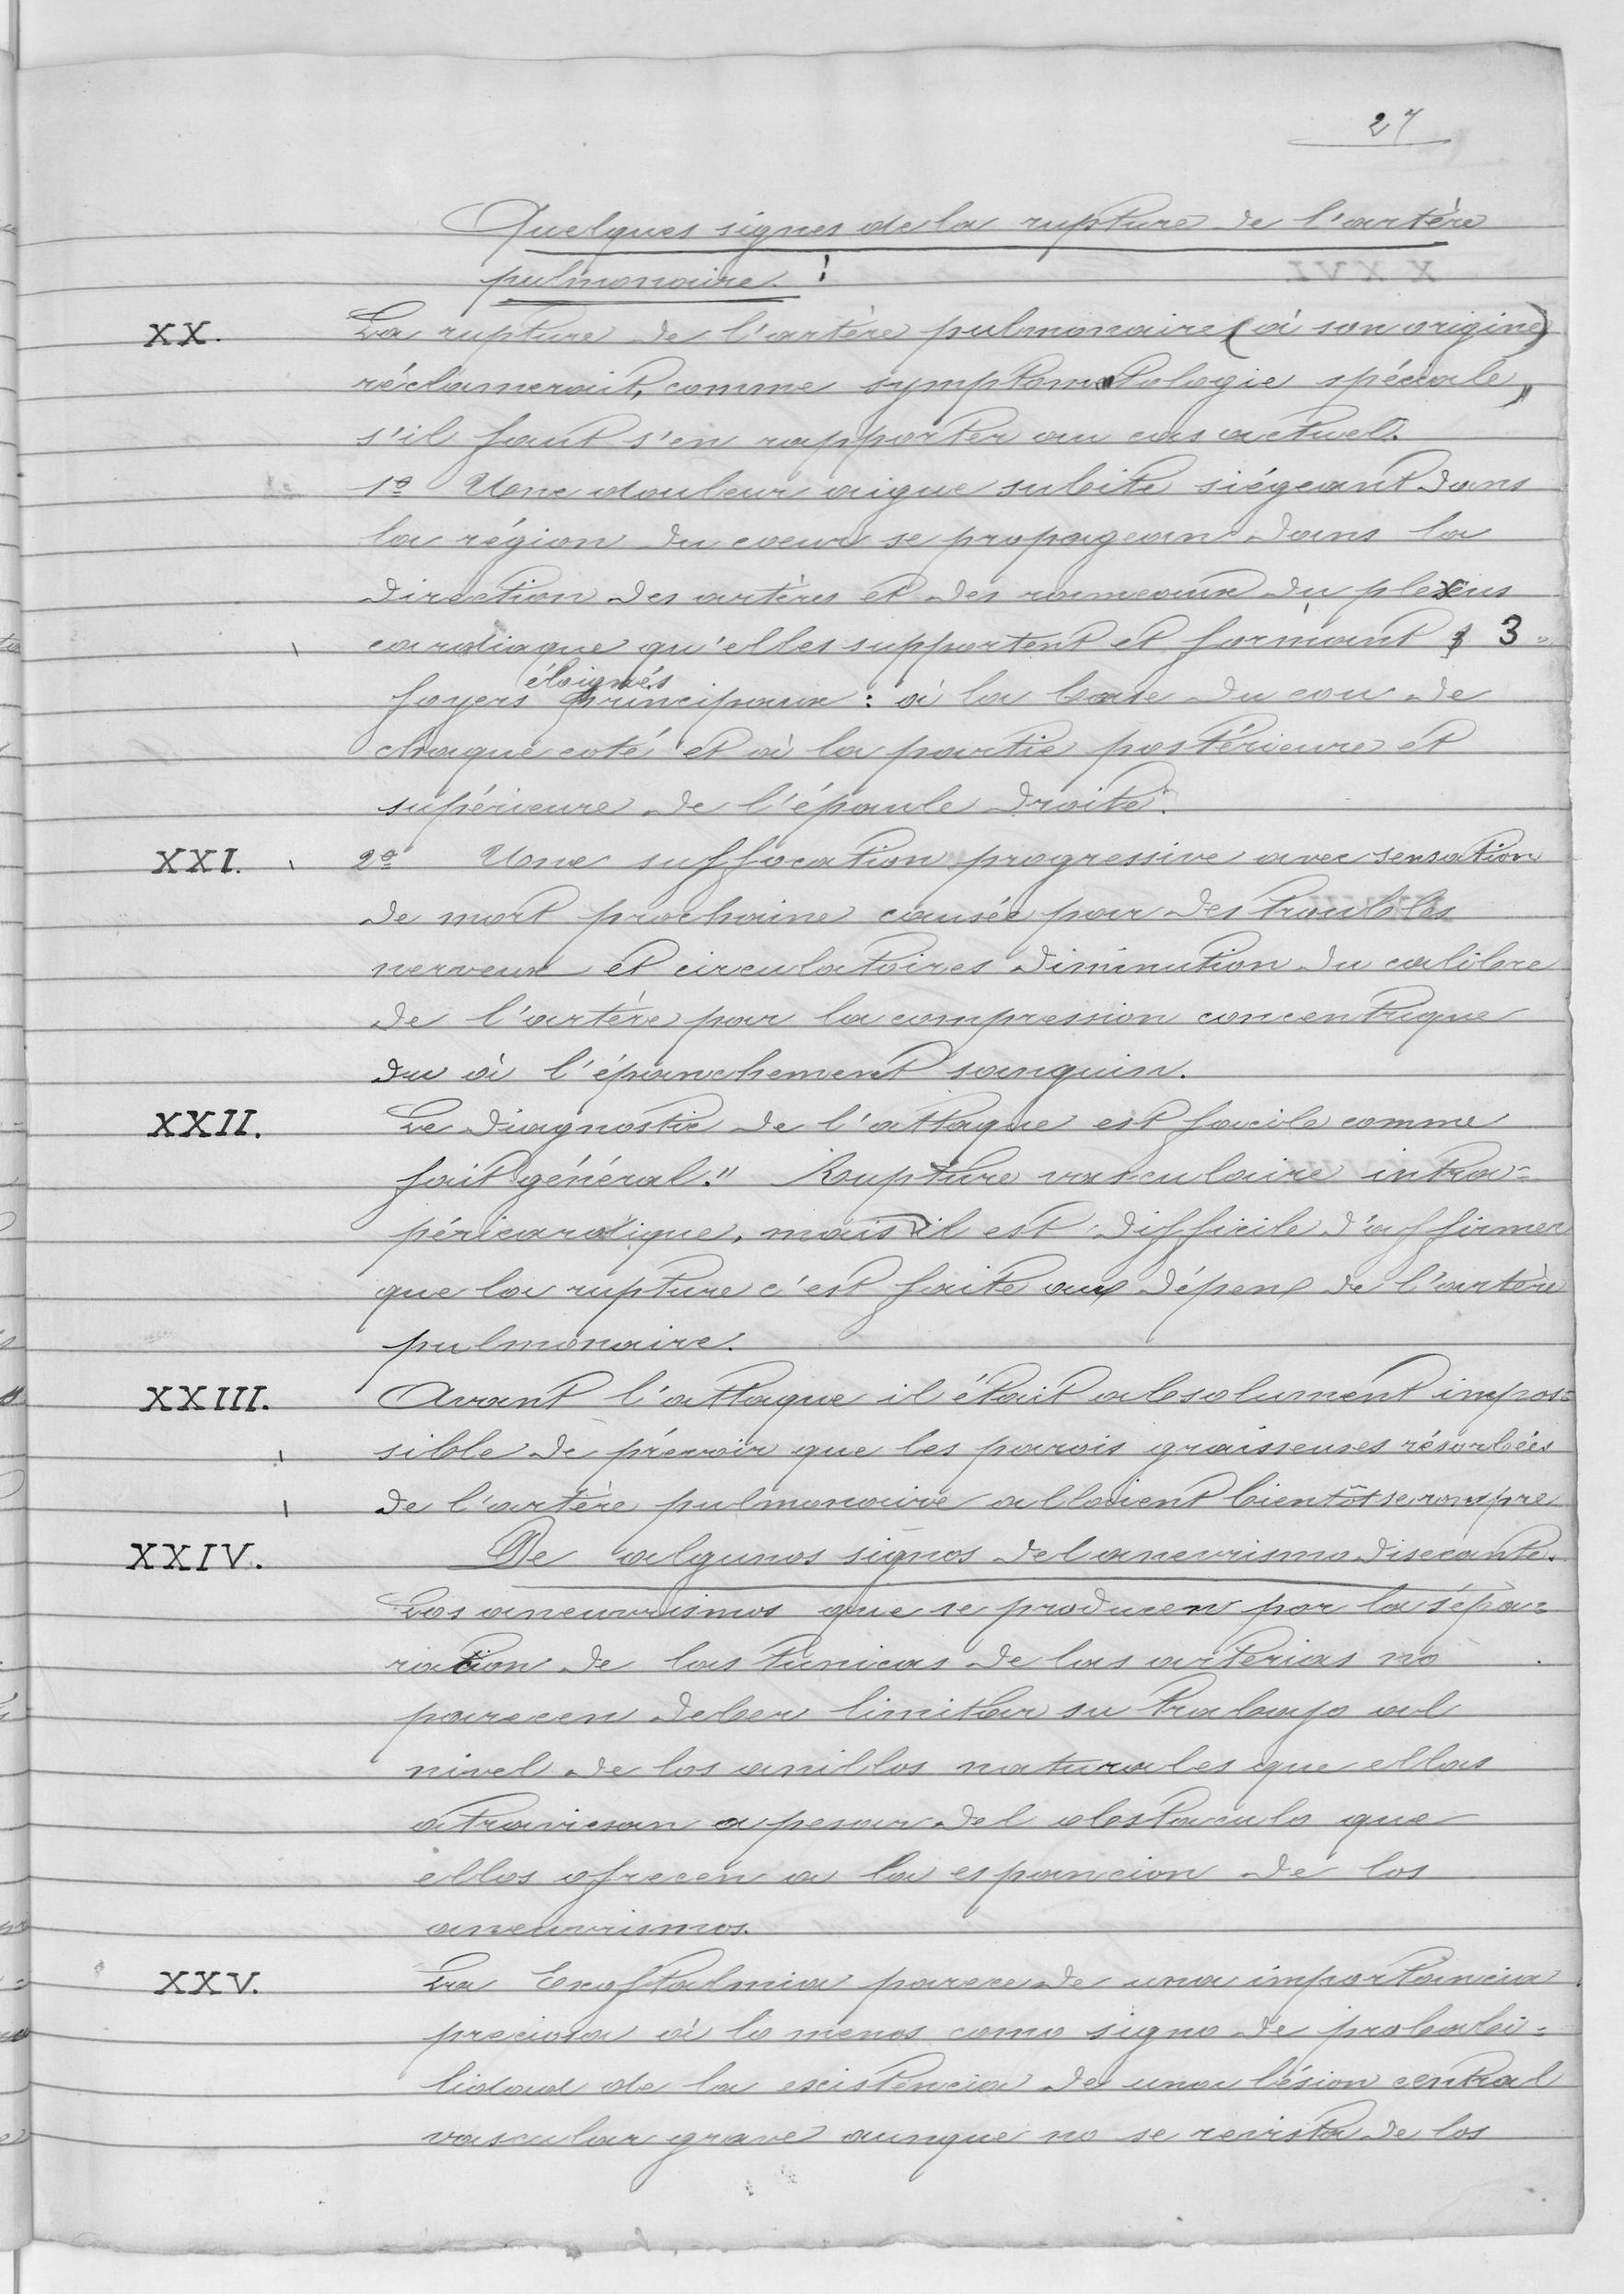 27
Quelques signes de la rupture de l'artère
pulmonaire. :
XX. La rupture de l'artère pulmonaire (à son origine)
réclamerait, comme symptomatologie spéciale,
s'il faut s'en rapporter au cas actuel.
1º Une douleur aigue subite siégeant dans
la région du coeur se propageant dans la
direction des artères et des rameaux du plexus
cardiaque qu'elles supportent et formant 3
éloignés
foyers principaux : à la base du cou de
chaque coté et à la partie postérieure et
supérieure de l'épaule droite.
XXI. 2º Une suffocation progressive avec sensation
de mort prochaine causée par des troubles
nerveux et circulatoires diminution du calibre
de l'artère par la compression concentrique
du à l'épanchement sanguin.
XXII. Le diagnostic de l'attaque est facile comme
fait général." Rupture vasculaire intra=
péricardique, mais il est difficile d'affirmer
que la rupture c'est faite aux dépens de l'artère
pulmonaire.
XXIII. Avant l'attaque il était absolument impos=
sible de prévoir que les parois graisseuses résorbées
de l'artère pulmonaire allaient bientôt se rompre
XXIV. De algunos signos del aneurismo disecante.
Los aneurismos que se producen por la sépa=
ration de las tunicas de las arterias no
parecen deber limitar su trabajo al
nivel de los anillos naturales que ellas
atraviesan a pesar del obstaculo que
ellos ofrecen a la espancion de los
aneurismos.
XXV. La Exoftalmia parece de una importancia
preciosa à lo menos como signo de probabi=
lidad de la existencia de una lésion central
vascular grave aunque no se revista de los